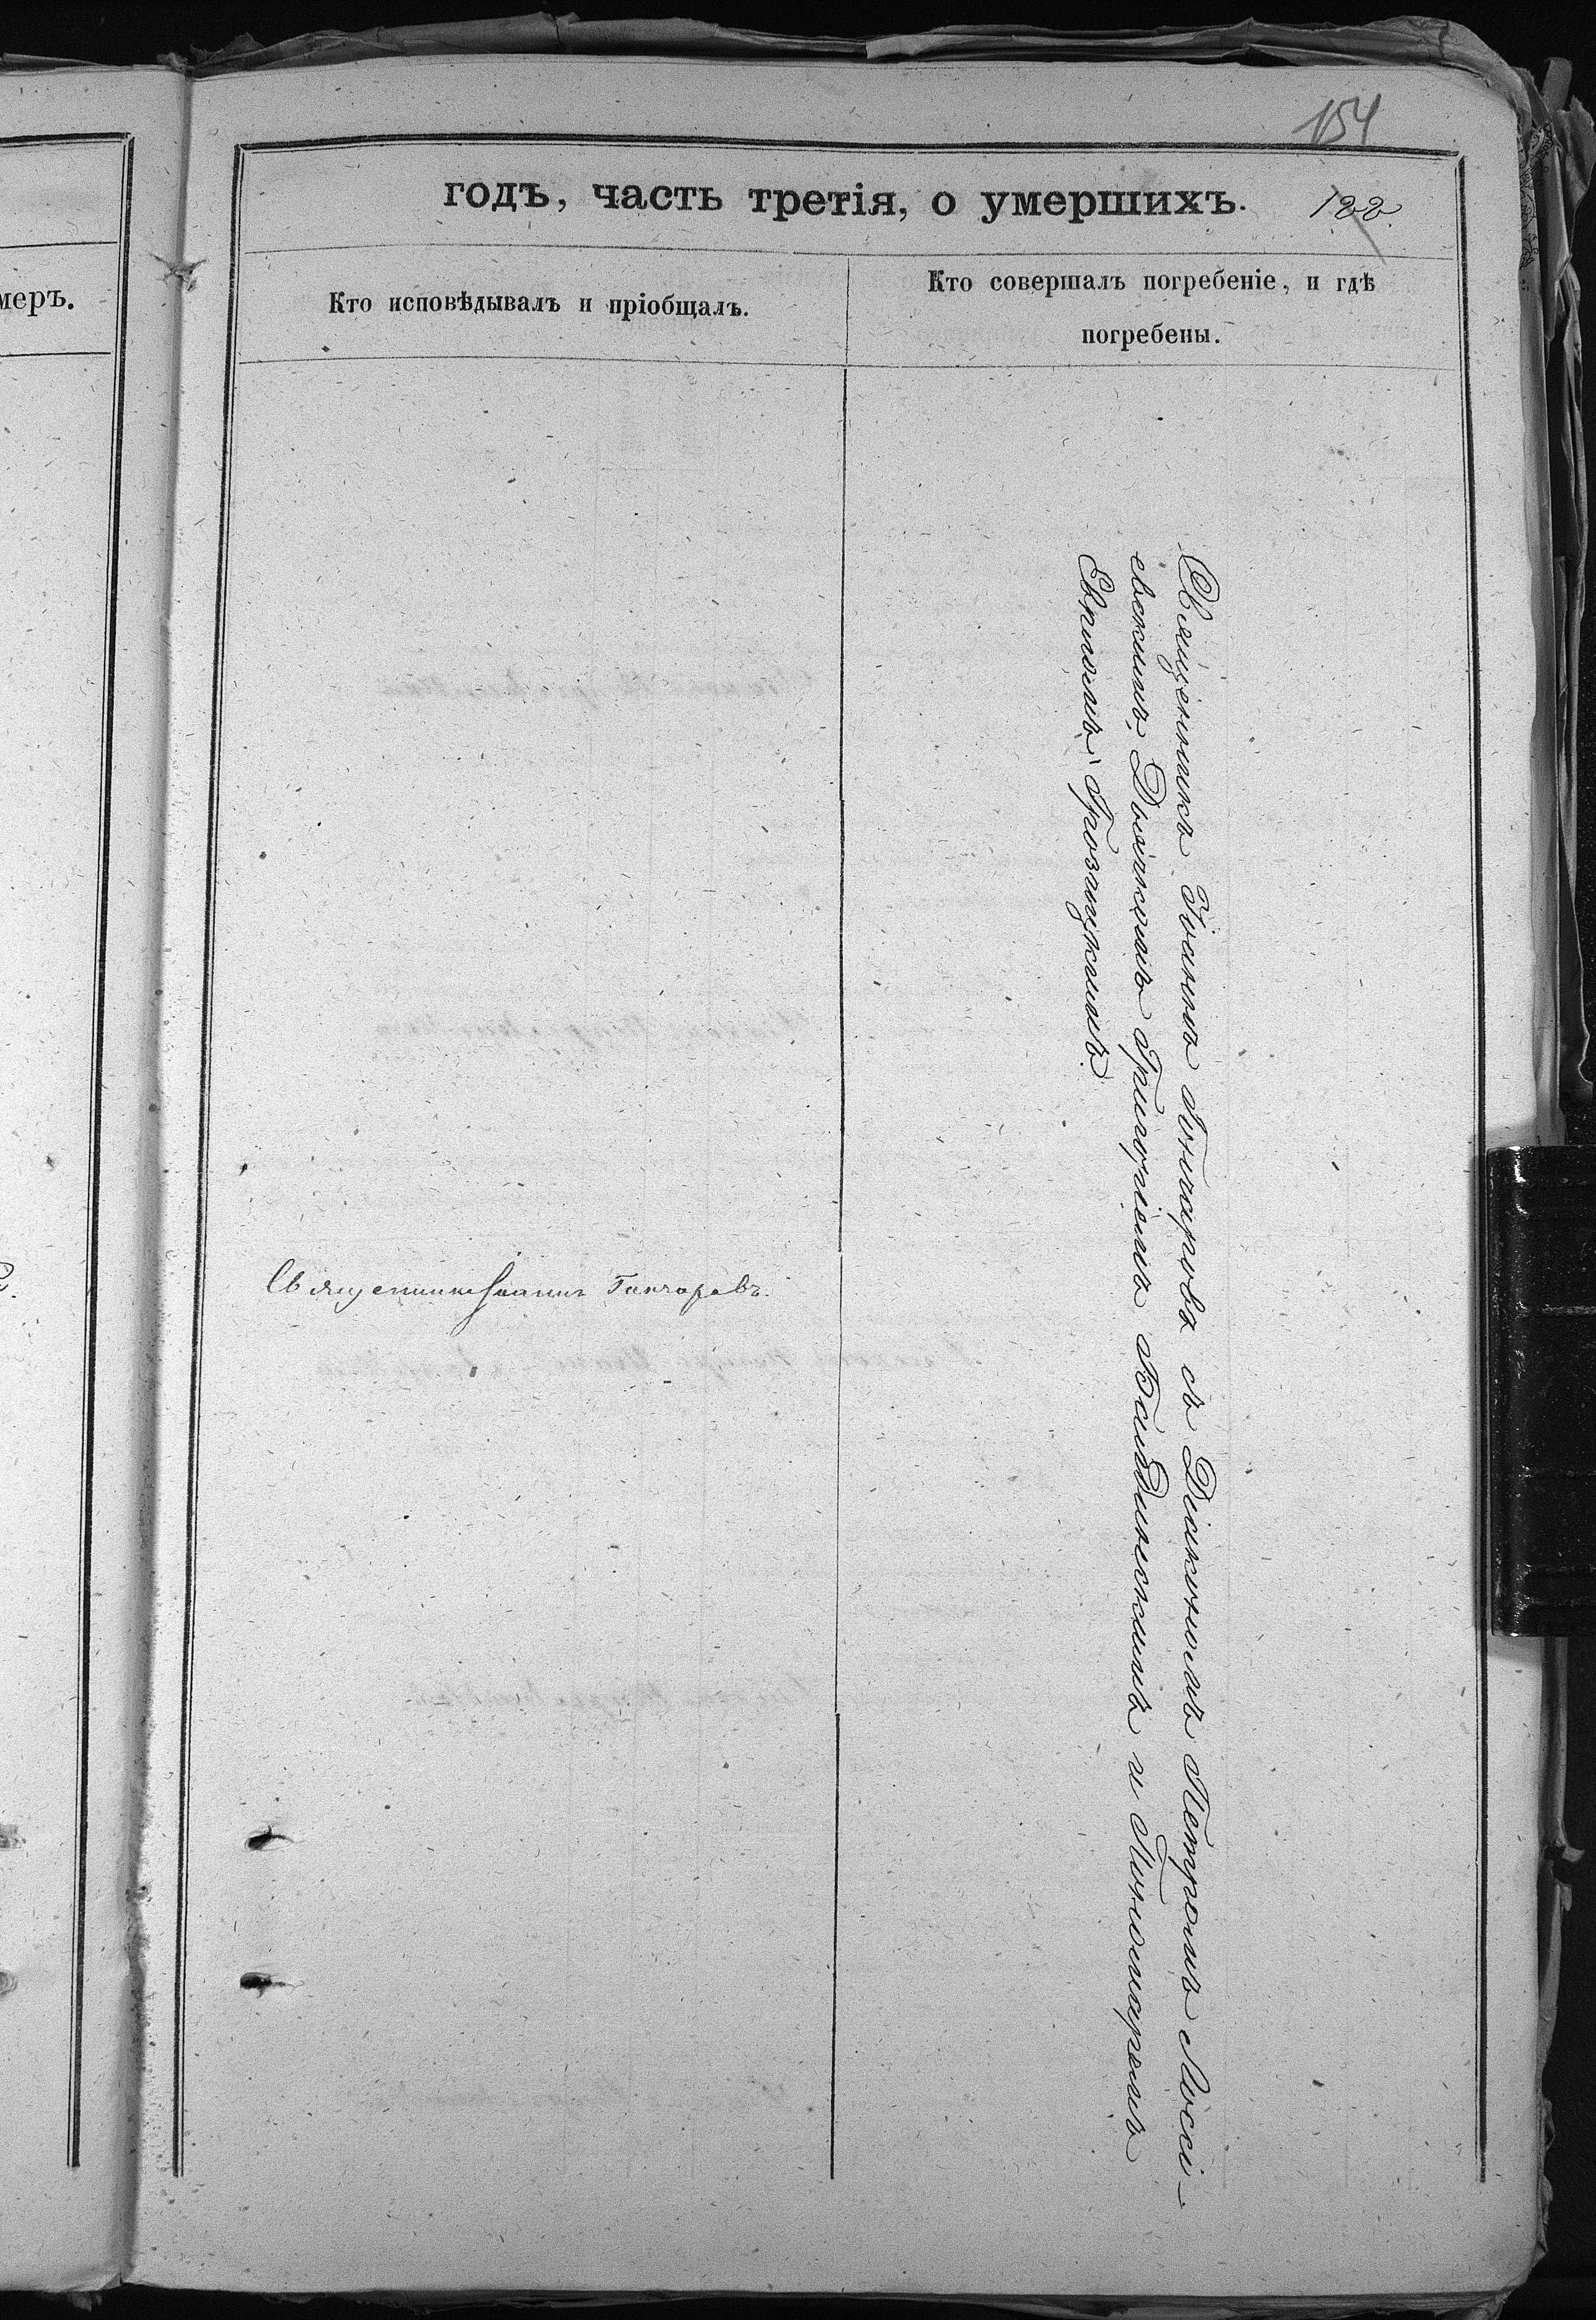 154
годъ, часть третія, о умершихъ.
122
меръ.
Кто исповѣдывалъ и пріобщалъ.
Кто совершалъ погребеніе, и гдѣ
погребены.
Священникъ Іоаннъ Гончаровъ съ Діакономъ Петромъ
евскимъ, Дьячкомъ Григоріемъ и Пономаремъ
Священникъ Іоаннъ Гончаровъ.